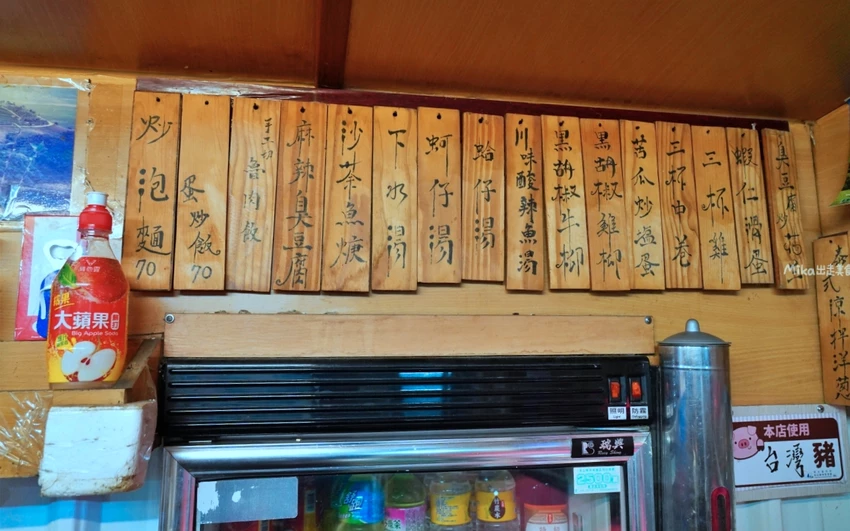 炒泡麵 70
蛋炒飯 70
手工切魯肉飯
麻辣臭豆腐
沙茶魚焿
下水湯
蚵仔湯
蛤仔湯
川味酸辣魚湯
黑胡椒牛柳
黑胡椒雞柳
苦瓜炒塩蛋
三杯中卷
三杯雞
蝦仁滑蛋
臭豆腐炒
Mika出走美食
式涼拌洋蔥
大蘋果
Big Apple Soda
照明
Light
防霧
瑞興
本店使用
台灣豬